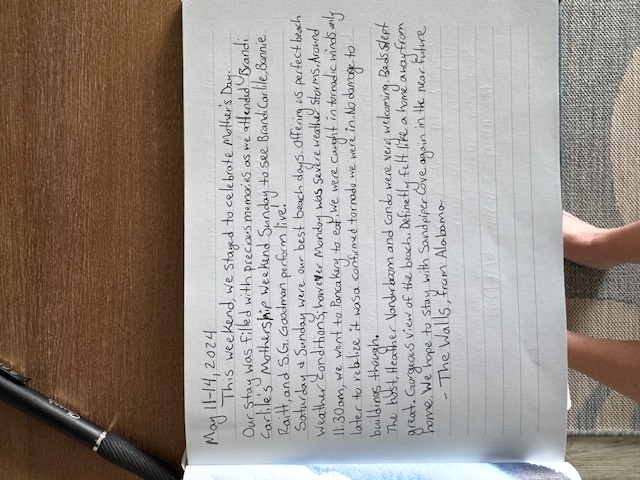 May 11-14, 2024
This weekend, we stayed to celebrate Mother's Day.
Our stay was filled with precious memories as we attended Brandi
Carlile's Mothership Weekend Sunday to see Brandi Carlile, Bonnie
Raitt, and S.G. Goodman perform live!
Saturday & Sunday were our best beach days. Offering us perfect beach
weather conditions, however Monday was severe weather storms. Around
11:30am, we went to Pancakery to eat. We were caught in tornadic winds only
later to realize it was a confirmed tornado we were in. No damage to
buildings though.
The host, Heather Vanderboom and condo were very welcoming. Beds slept
great. Gorgeous view of the beach. Definetly felt like a home away from
home. We hope to stay with Sandpiper Cove again in the near future
- The Walls, from Alabama